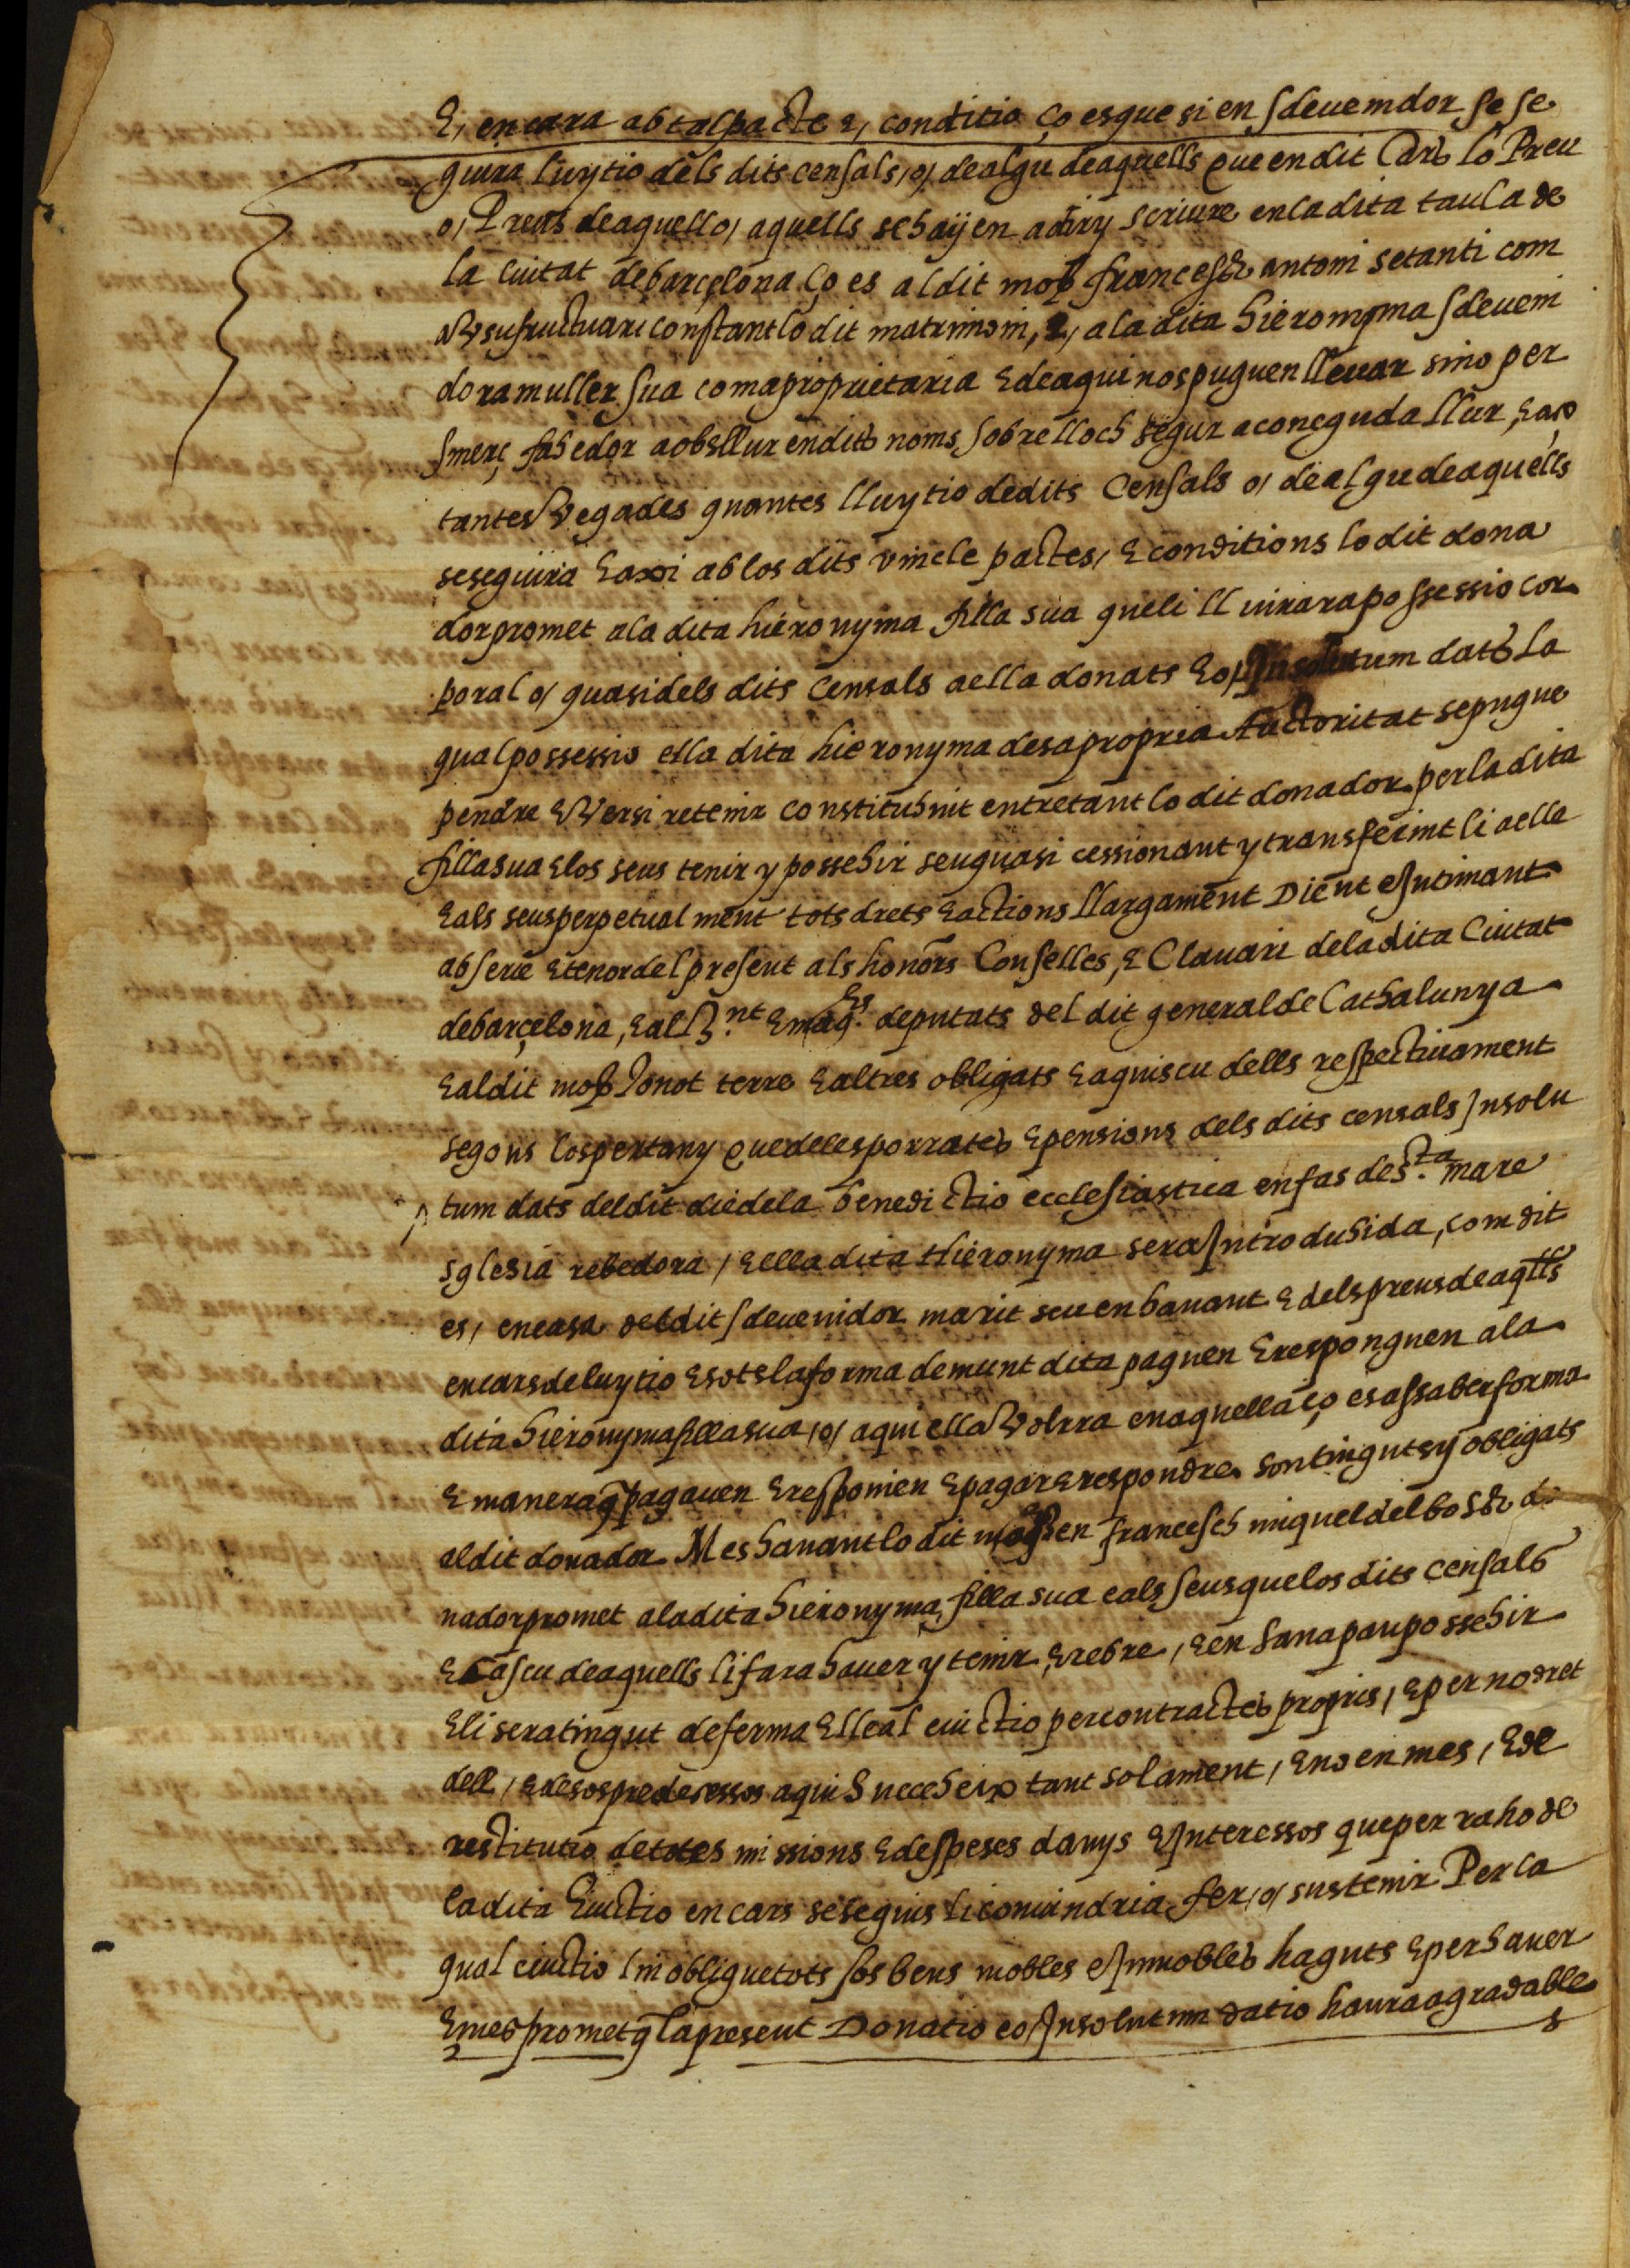 E, encara ab tal pacte e, conditio ço es que si en sdevenidor se se
guira luytio dels dits censals, o, de algu de aquells que en dit Cars lo Preu
o, Preus de aquell o, aquells se hajen a dir y scriure en la dita taula de
la ciutat de barçelona ço es al dit moß francesch antoni setanti com
a Vsufructuari constant lo dit matrimoni, e, a la dita hieronyma sdeveni
dora muller sua com a proprietaria E de aqui nos puguen llevar sino per
smerç fahedor a obs llur en dits noms sobre lloch segur a coneguda llur, E aço
tantes Vegades quantes lluytio de dits Censals o, de algu de aquells
se seguira E axi ab los dits vincle pactes, E conditions lo dit dona
dor promet a la dita hieronyma filla sua que li lliurara possessio cor
poral o, quasi dels dits Censals a ella donats E o, Insolutum dats la
qual possessio ella dita hieronyma de sa propria Auctoritat se pugue
pendre E Versi retenir constituhint entretant lo dit donador per la dita
filla sua E los seus tenir y possehir seu quasi cessionant y transferint li a ella
E als seus perpetualment tots drets E actions llargament Dient e Intimant
ab serie E tenor del present als honors Conselles, E Clavari de la dita Ciutat
de barçelona, E als R.nt E mag.chs deputats del dit general de Cathalunya
E al dit moß Jonot terre E altres obligats E a quiscu dells respectivament
segons los pertany que de les porrates E pensions dels dits censals Insolu
tum dats del dit die de la benedictio ecclesiastica en fas de s.ta mare
sglesia rebedora, E ella dita Hieronyma sera Introduhida, com dit
es, en casa del dit sdevenidor marit seu en havant E dels preus de aqlls
en cars de luytio E sots la forma demunt dita paguen E responguen a la
dita hieronyma filla sua, o, a qui ella Volrra en aquella ço es assaber forma
E manera q pagaven E responien E pagar E respondre son tinguts y obligats
al dit donador. Mes havant lo dit moßen francesch miquel del bosch do
nador promet a la dita hieronyma, filla sua e als seus que los dits censals
E cascu de aquells li fara haver y tenir E rebre, E en sana pau possehir
E li sera tingut de ferma E lleal evictio per contractes propris, E per no dret
dell, E de sos predecessos a qui Succeheix tant solament, E no en mes, E de
restitutio de totes missions E despeses danys E Interessos que per raho de
la dita Evictio en cars se seguis li convindria fer, o, sustenir Per la
qual evictio lin obligue tots sos bens mobles e Inmobles haguts E per haver
E mes promet q la present Donatio e o, Insolutum datio haura agradable